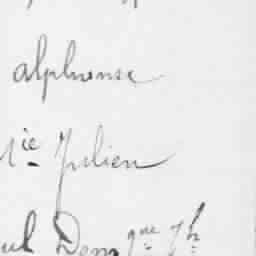 alphonse
ie Julien
ul Dom que Jh